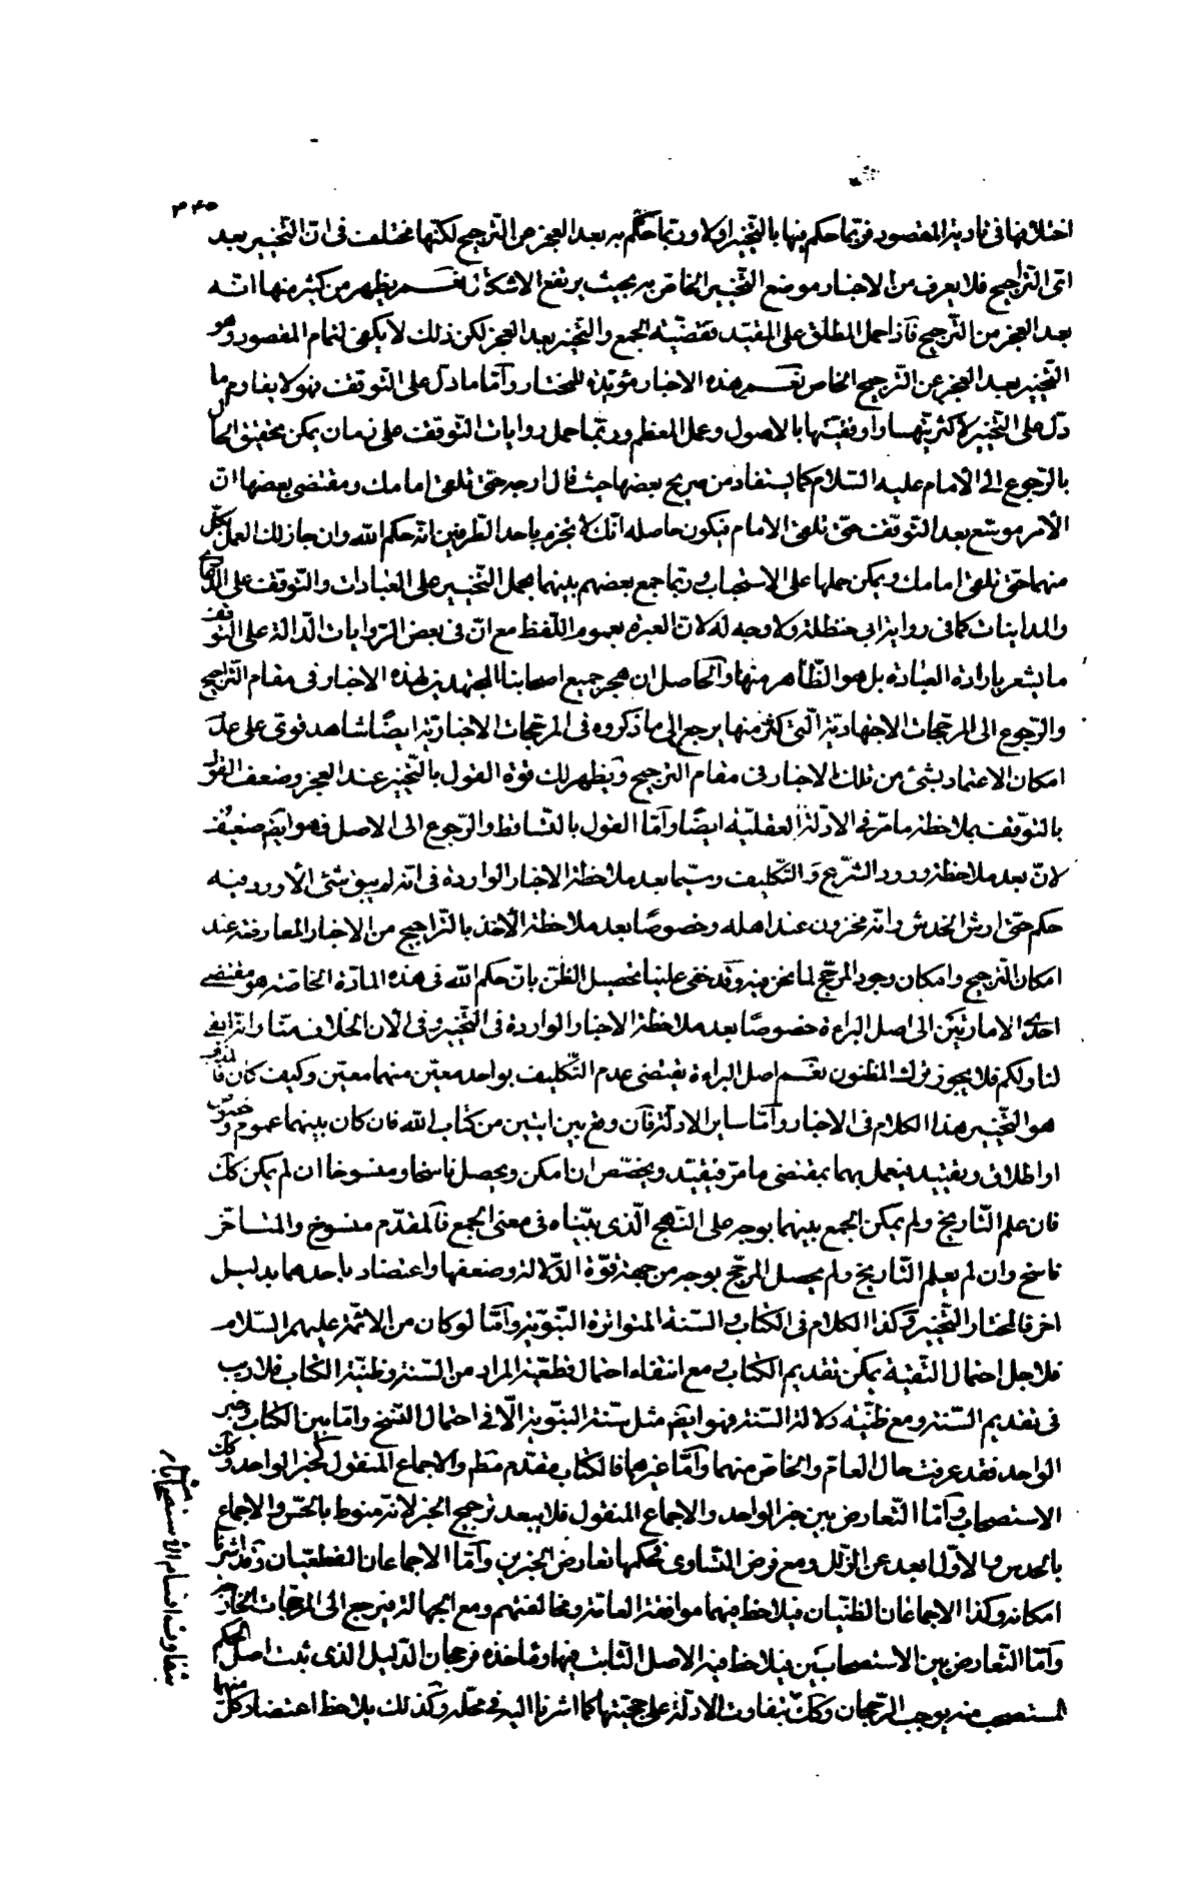 ٣٤٥
اختلافها فى تادية المقصود فربّما حكم فيها بالتّخيير اولا وربّما حكم به بعد العجز من التّرجيح لكنّها مختلف فى انّ التّخيير بعد
اىّ التّراجيح فلا يعرف من الاخبار موضع التّخيير الخاصّ به بحيث يرتفع الاشكال نعم يظهر من كثير منها انّه
بعد العجز من التّرجيح فاذا حمل المطلق على المقيّد فقضيّة الجمع والتّخيير بعد العجز لكن ذلك لا يكفى لتمام المقصود وهو
التّخيير بعد العجز عن التّرجيح الخاص نعم هذه الاخبار مؤيّدة للمختار وامّا ما دلّ على التّوقّف فهو لا يقاوم ما
دلّ على التّخيير لاكثريّتها واوفقيّتها بالاصول وعمل المعظم وربّما حمل روايات التّوقّف على زمان يمكن تحقيق الحال
بالرّجوع الى الامام عليه السّلام كما يستفاد من صريح بعضها حيث قال ارجه حتّى تلقى امامك ومقتضى بعضها انّ
الامر موسّع بعد التّوقّف حتّى تلقى الامام فيكون حاصله انّك لا تجزم باحد الطّرفين انّه حكم اللّه وان جاز لك العمل بكلّ
منهما حتّى تلقى امامك ويمكن حملها على الاستحباب وربّما جمع بعضهم بينهما بحمل التّخيير على العبادات والتّوقّف على الدّعاوى
والمداينات كما فى رواية ابى حنظلة ولا وجه له لانّ العبرة بعموم اللّفظ مع انّ فى بعض الرّوايات الدّالة على التّوقّف
ما يشعر بارادة العبادة بل هو الظّاهر منها والحاصل ان هجر جميع اصحابنا المجتهدين لهذه الاخبار فى مقام التّراجيح
والرّجوع الى المرجّحات الاجتهاديّة الّتى كثير منها يرجع الى ما ذكروه فى المرجّحات الاخباريّة ايضًا شاهد قوىّ على عدم
امكان الاعتماد بشئ من تلك الاخبار فى مقام التّرجيح ويظهر لك قوّة القول بالتّخيير عند العجز وضعف القول
بالتوّقف بملاحظة ما مرّ فى الادلّة العقليّة ايضًا وامّا القول بالتّساقط والرّجوع الى الاصل فهو ايضً ضعيف
لانّ بعد ملاحظة ورود الشّرع والتّكليف وسيّما بعد ملاحظة الاخبار الواردة فى انّه لم يبق شئ الّا ورد فيه
حكم حتّى ارش الخدش وانّه مخزون عند اهله وخصوصًا بعد ملاحظة الاخذ بالتّراجيح من الاخبار المتعارضة عند
امكان التّرجيح وامكان وجود المرجّح لما نحن فيه وقد خفى علينا تحصيل الظّن بانّ حكم اللّه فى هذه المادّة الخاصّة هو مقتضى
احدى الامارتين لا اصل البراءة خصوصًا بعد ملاحظة الاخبار الواردة فى التّخيير وفى انّ الخلاف منّا وانّه ابقى
لنا ولكم فلا يجوز ترك المظنون نعم اصل البراءة يقتضى عدم التّكليف بواحد معيّن منهما معيّن وكيف كان فالمذهب
هو التّخيير هذا الكلام فى الاخبار وامّا سائر الادلّة فان وقع بين ايتين من كتاب اللّه فان كان بينهما عموم وخصوص
او اطلاق وتقييد فيعمل بهما بمقتضى ما مرّ فيقيّد ويخصّص ان امكن ويحصل ناسخا ومنسوخا ان لم يمكن كك
فان علم التّاريخ ولم يمكن الجمع بينهما بوجه على النّهج الّذى بيّناه فى معنى الجمع فالمقدّم منسوخ والمتاخّر
ناسخ وان لم يعلم التّاريخ ولم يحصل المرجّح بوجه من جهة قوّة الدّلالة وضعفها واعتضاد باحدهما بدليل
اخر فالمختار التّخيير وكذا الكلام فى الكتاب والسّنة المتواترة النّبويّة وامّا لو كان من الائمّة عليهم السّلام
فلاجل احتمال التّقيّة يمكن تقديم الكتاب ومع انتفاء احتمال قطعيّة المراد من السّنة وظنيّة الكتاب فلا ريب
فى تقديم السّنة ومع ظنّيّة دلالة السّنة فهو ايضً مثل سنّة النّبويّة الّا فى احتمال النّسخ وامّا بين الكتاب وخبر
الواحد فقد عرفت حال العامّ والخاصّ منهما وامّا غيرها فالكتاب مقدّم مطم والاجماع المنقول كخبر الواحد وكك
الاستصحاب وامّا التّعارض بين خبر الواحد والاجماع المنقول فلا يبعد ترجيح الخبر لانّه منوط بالحسّ والاجماع
بالحدس والاوّل ابعد عن الزّلل ومع فرض التّساوى فحكمها تعارض الخبرين وامّا الاجماعان القطعيّان وقد اشرنا
امكانه وكذا الاجماعان الظّنّيان فيلاحظ فيهما موافقة العامّة ومخالفتهم ومع الجهالة فيرجع الى المرجّحات الخارجة
وامّا التّعارض بين الاستصحابين فيلاحظ فيه الاصل الثّابت فيها وماخذه فرجحان الدّليل الذى ثبت اصل الحكم
المستصحب منه يوجب الرّجحان وكك بتفاوت الادلّة على حجّيّتها كما اشرنا اليه فى محلّه وكذلك يلاحظ اعتضاد كلّ منهما